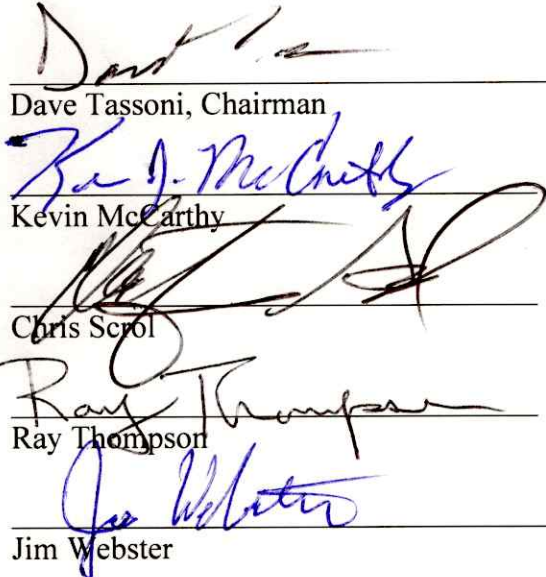 Dave Tassoni, Chairman
Ke J. McCarthy
Kevin McCarthy
Chris Scrol
Ray Thompson
Ray Thompson
Jim Webster
Jim Webster